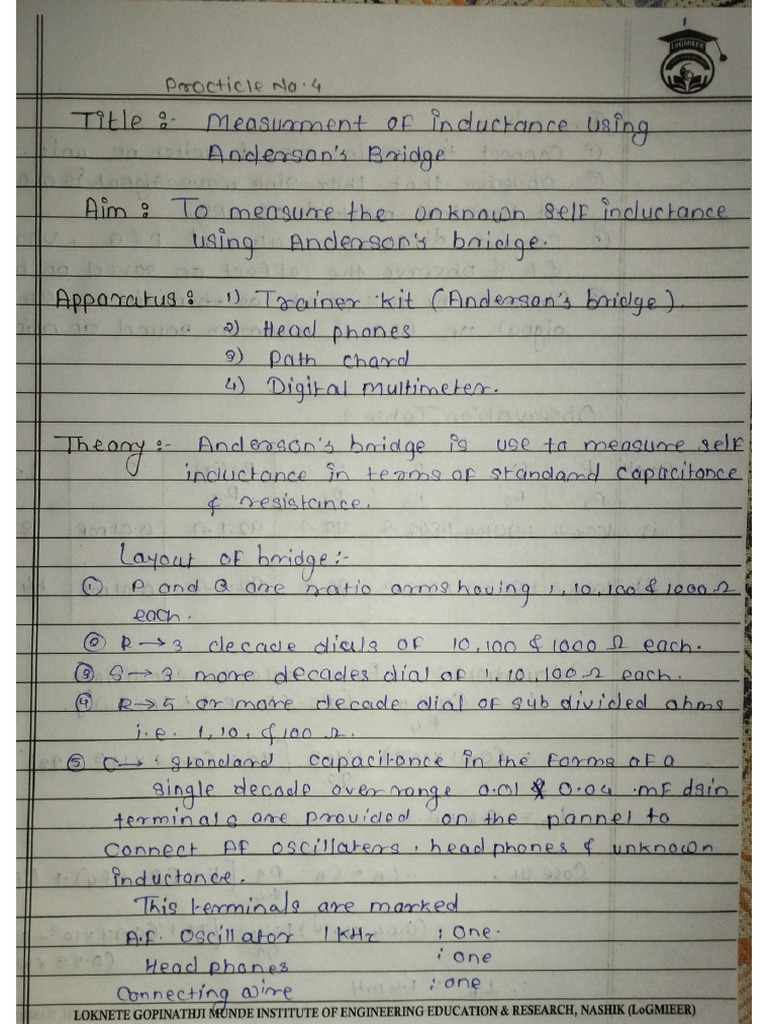 LoGMIEER
Procticle No. 4
Title :- Measurment of inductance using
Anderson's Bridge
Aim : To measure the unknown self inductance
using Anderson's bridge.
Apparatus : 1) Trainer kit (Anderson's bridge).
2) Head phones
3) Path chard
4) Digital multimeter.
Theory :- Anderson's bridge is use to measure self
inductance in terms of standard capacitance
& resistance.
Layout of bridge :-
① P and Q are ratio arms having 1, 10, 100 & 1000 Ω
each.
② R → 3 decade dials of 10, 100 & 1000 Ω each.
③ S → 3 more decades dial of 1, 10, 100 Ω each.
④ R → 5 or more decade dial of sub divided ohms
i.e. 1, 10, & 100 Ω.
⑤ C → standard capacitance in the forms of a
single decade over range 0.01 & 0.04 mf dsin
terminals are provided on the pannel to
connect AF oscillaters, head phones & unknown
inductance.
This terminals are marked
A.F. Oscillator 1 kHz : One.
Head phones : one
Connecting wire : one
LOKNETE GOPINATHJI MUNDE INSTITUTE OF ENGINEERING EDUCATION & RESEARCH, NASHIK (LoGMIEER)